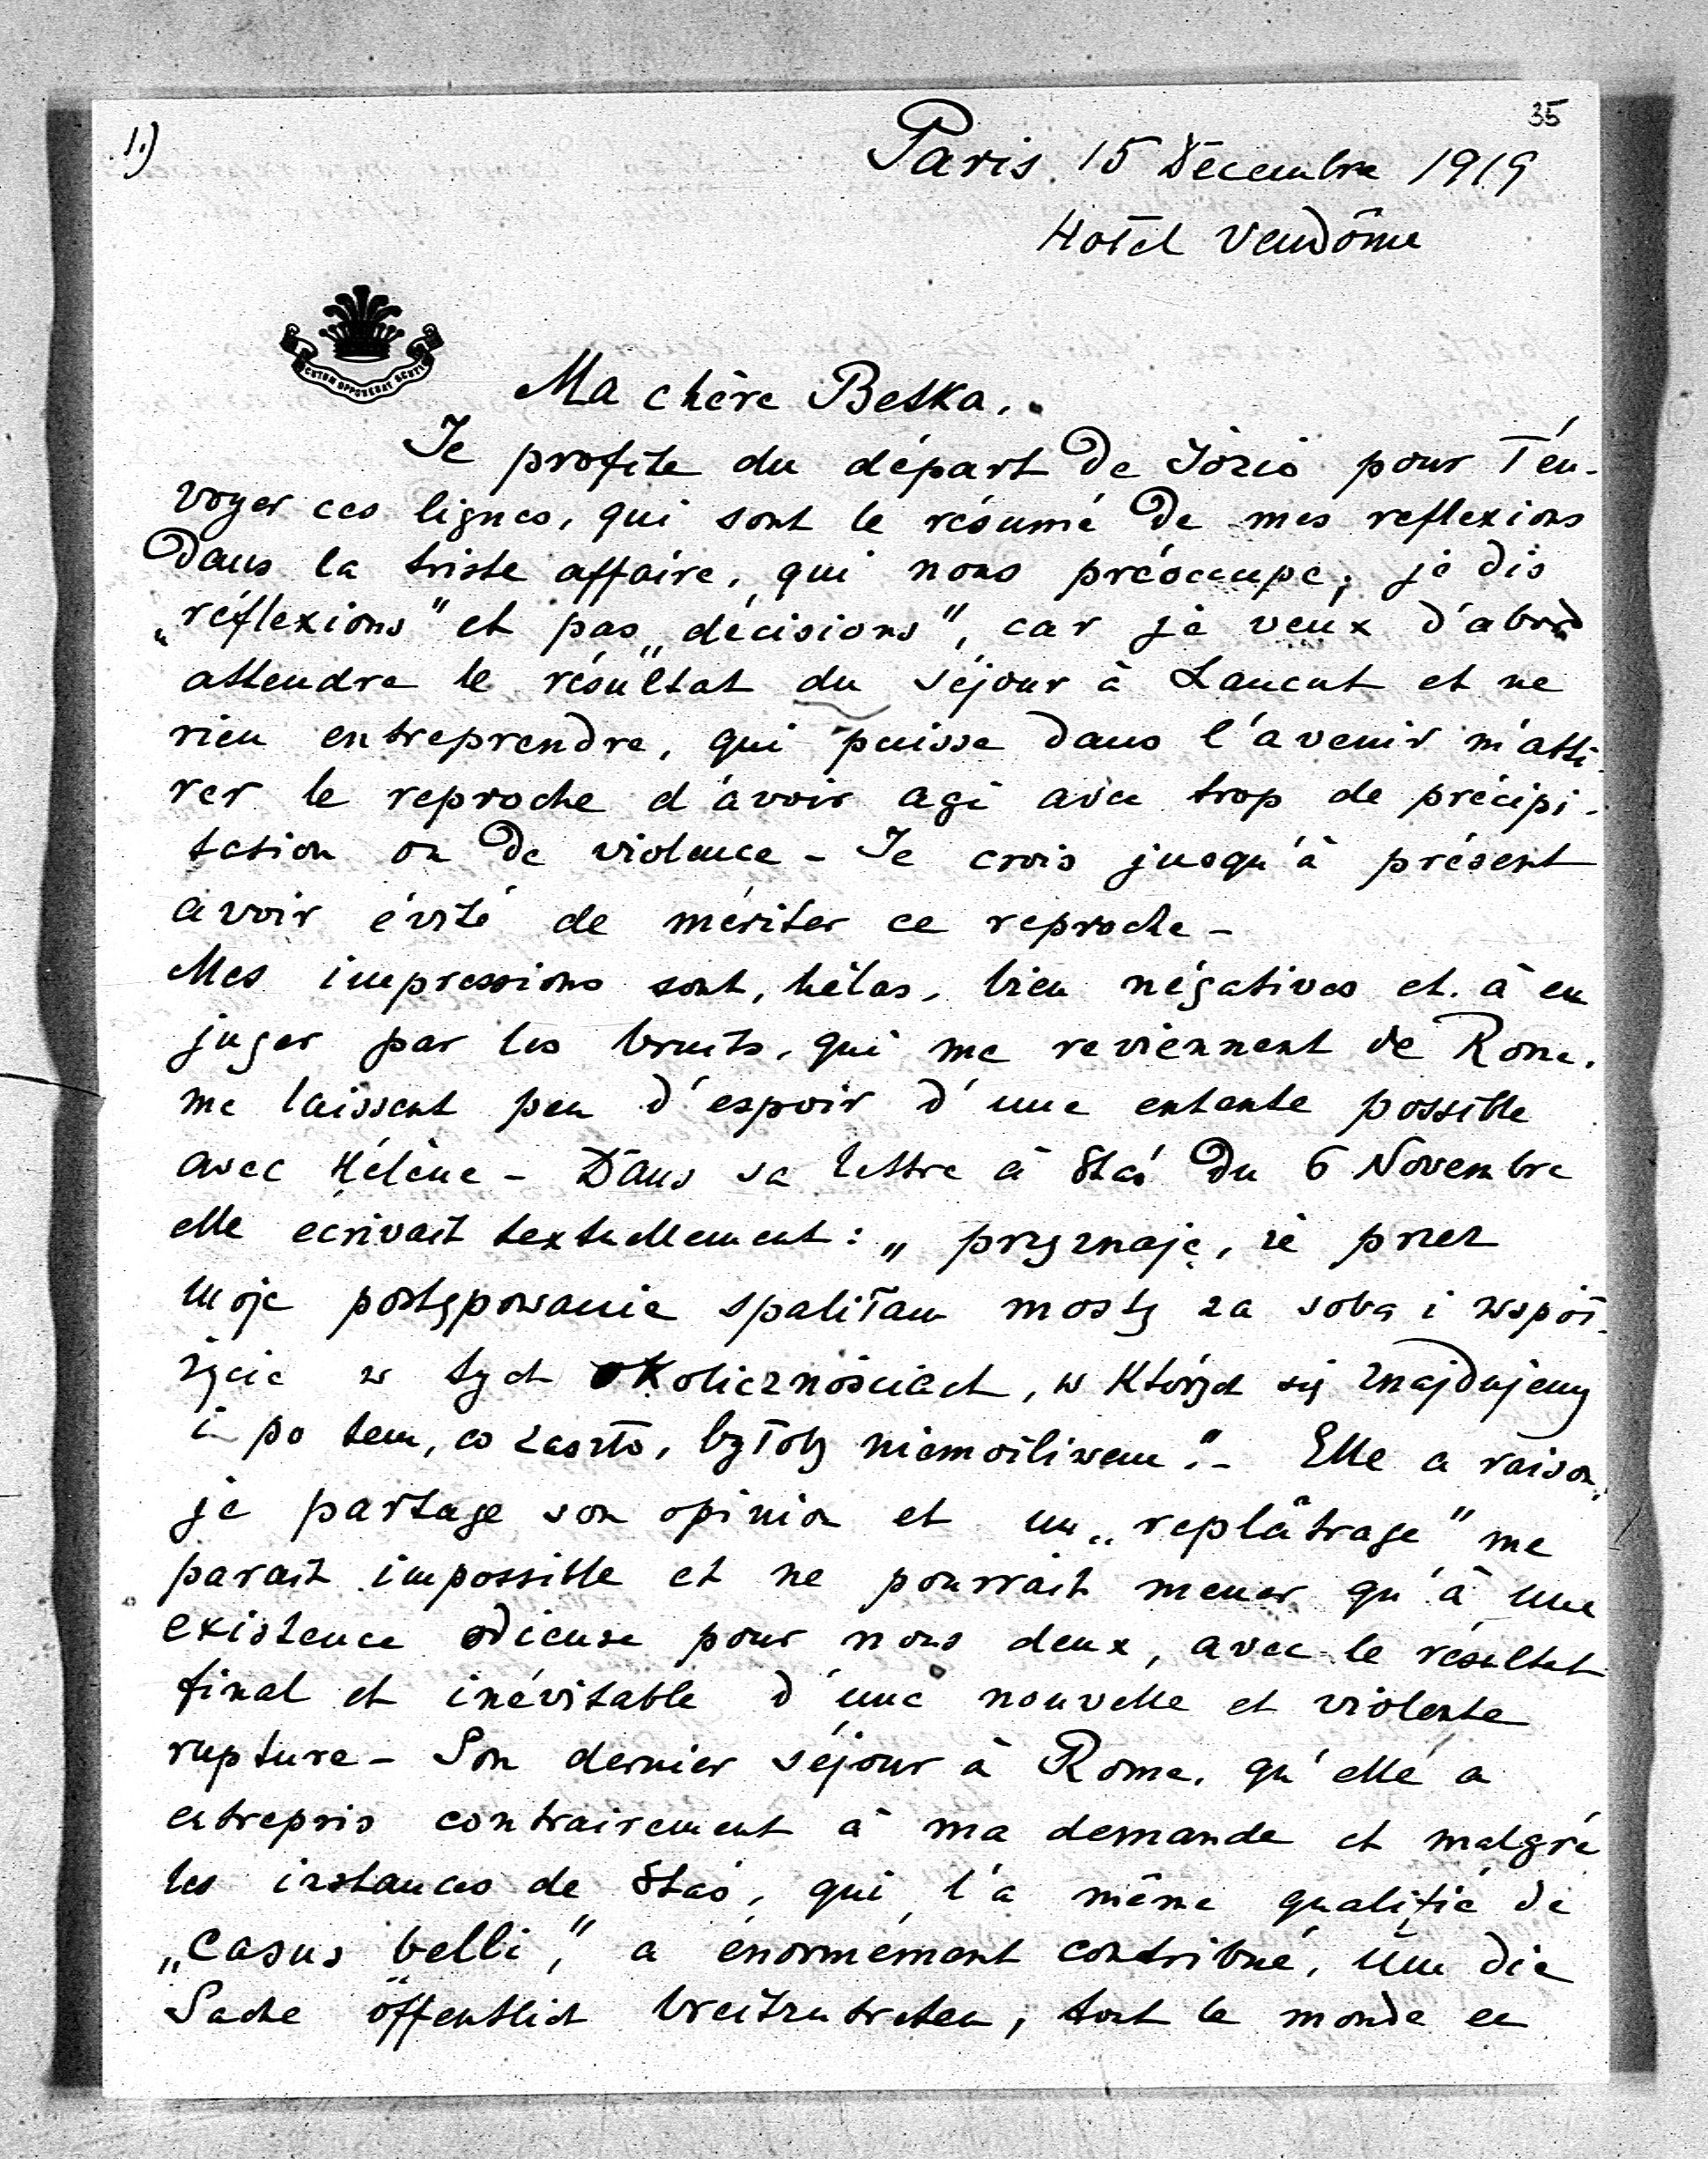 35
1.)
Paris 15 Décembre 1919
Hotel Vendôme
SCUTUM OPPONEBAT SCUTIS
Ma chère Betka,
Je profite du départ de Józio pour t'en-
voyer ces lignes, qui sont le résumé de mes reflexions
dans la triste affaire, qui nous préoccupe; je dis
„réflexions" et pas „décisions", car je veux d'abord
attendre le résultat du séjour à Lancut et ne
rien entreprendre, qui puisse dans l'avenir m'atti-
rer le reproche d'avoir agi avec trop de précipi-
tation ou de violence – Je crois jusqu'à présent
avoir évité de mériter ce reproche –
Mes impressions sont, hélas, bien négatives et à en
juger par les bruits, qui me reviennent de Rome,
me laissent peu d'espoir d'une entente possible
avec Hélène – Dans sa lettre à Staś du 6 Novembre
elle écrivait textuellement: „przyznaję, że przez
moje postępowanie spaliłam mosty za sobą i współ-
życie w tych okolicznościach, w których się znajdujemy
i po tem, co zaszło, byłoby niemożliwem". – Elle a raison,
je partage son opinion et un „replâtrage" me
parait impossible et ne pourrait mener qu'à une
existence odieuse pour nous deux, avec le résultat
final et inévitable d'une nouvelle et violente
rupture – Son dernier séjour à Rome, qu'elle a
entrepris contrairement à ma demande et malgré
les instances de Staś, qui l'a même qualifié de
„casus belli," a énormément contribué, um die
Sache öffentlich breitzutreten, tout le monde en